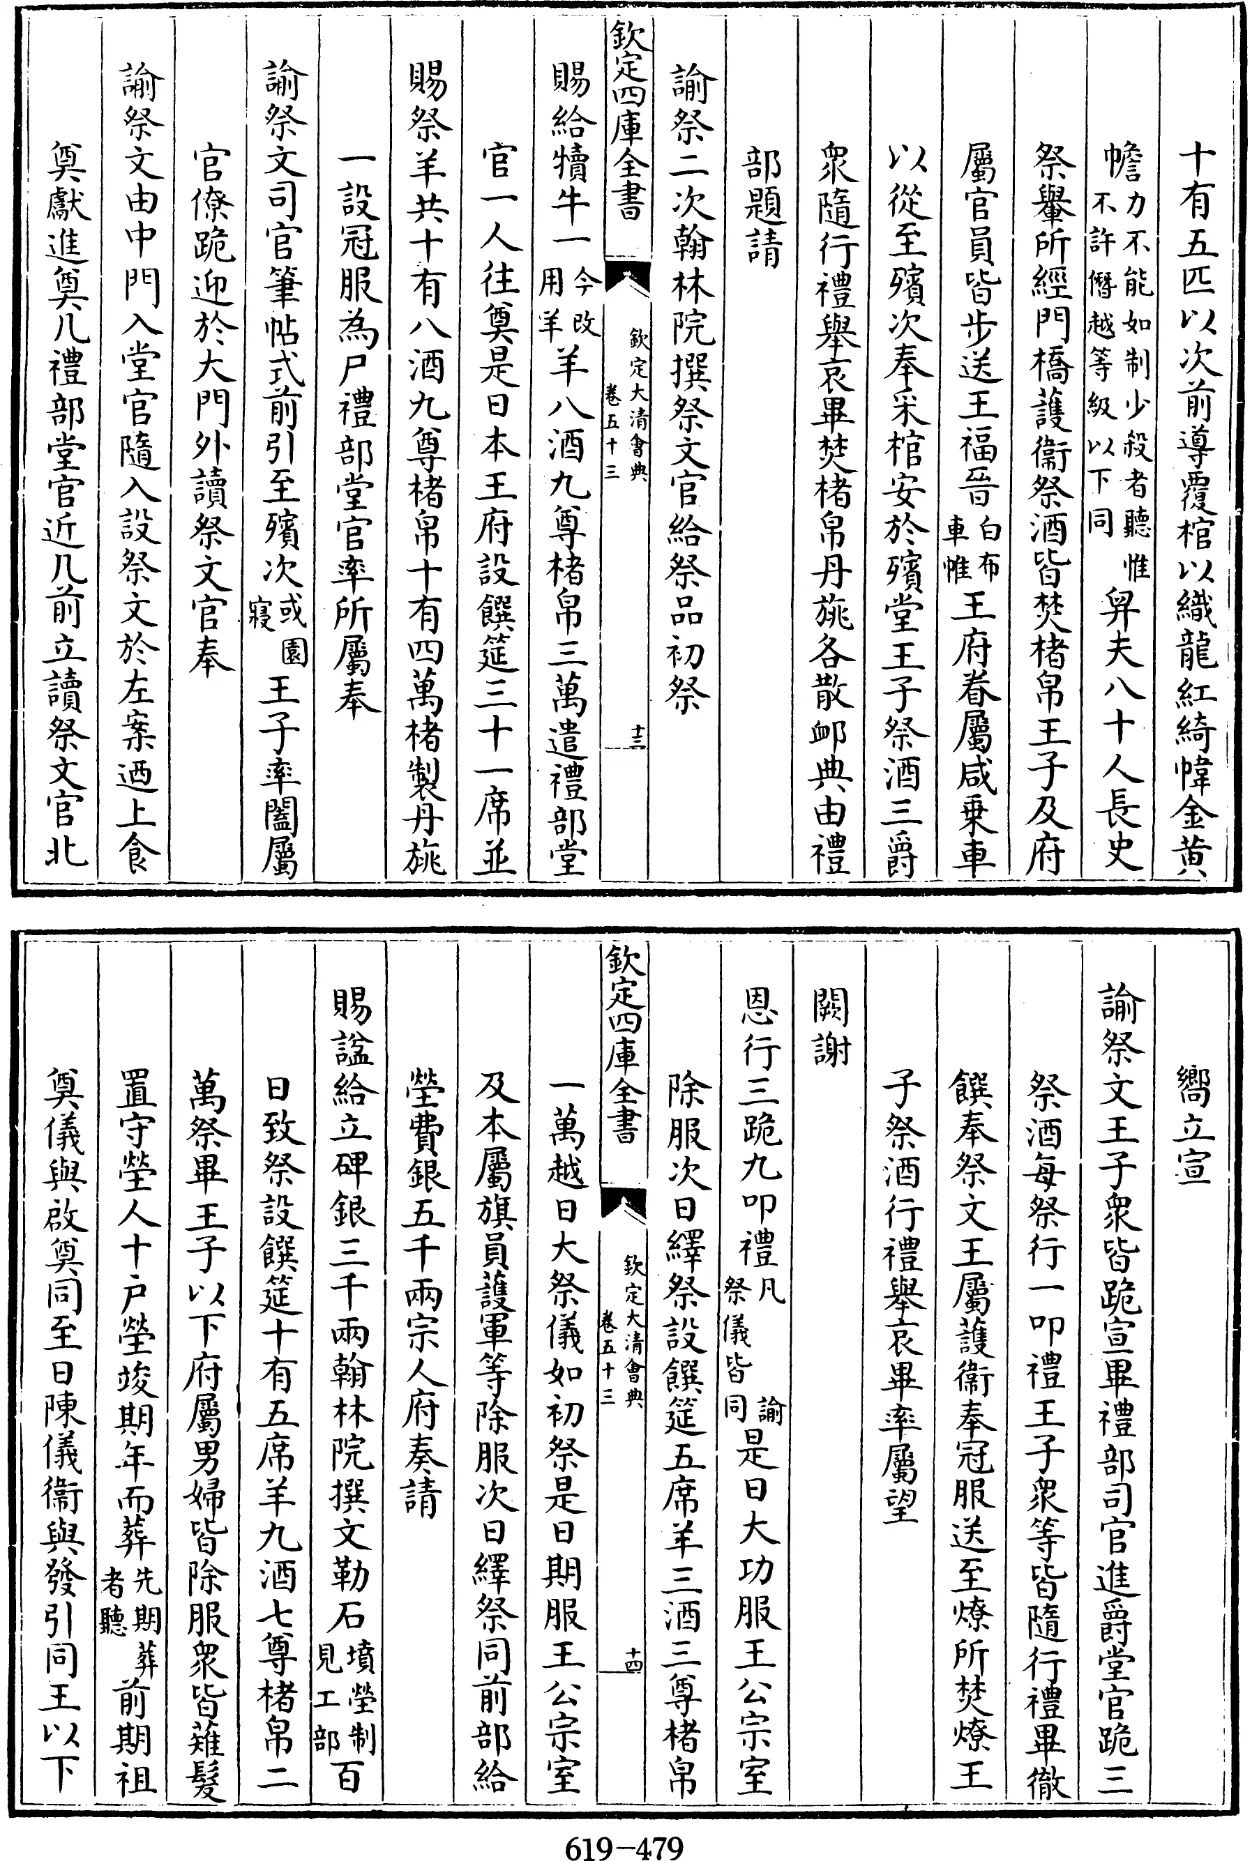 十有五匹以次前導覆棺以織龍紅綺幃金黃
幨力不能如制少殺者聽惟不許僭越等級以下同舁夫八十人長史
祭轝所經門橋護衞祭酒皆焚楮帛王子及府
屬官員皆步送王福晉白布車帷王府眷屬咸乗車
以從至殯次奉采棺安於殯堂王子祭酒三爵
衆隨行禮舉哀畢焚楮帛丹旐各散卹典由禮
部題請
諭祭二次翰林院撰祭文官給祭品初祭
欽定四庫全書
欽定大清會典
卷五十三
十三
賜給犢牛一今改用羊羊八酒九尊楮帛三萬遣禮部堂
官一人往奠是日本王府設饌筵三十一席並
賜祭羊共十有八酒九尊楮帛十有四萬楮製丹旐
一設冠服為尸禮部堂官率所屬奉
諭祭文司官筆帖式前引至殯次或園寢王子率闔屬
官僚跪迎於大門外讀祭文官奉
諭祭文由中門入堂官隨入設祭文於左案迺上食
奠獻進奠几禮部堂官近几前立讀祭文官北
嚮立宣
諭祭文王子衆皆跪宣畢禮部司官進爵堂官跪三
祭酒每祭行一叩禮王子衆等皆隨行禮畢徹
饌奉祭文王屬護衞奉冠服送至燎所焚燎王
子祭酒行禮舉哀畢率屬望
闕謝
恩行三跪九叩禮凡諭祭儀皆同是日大功服王公宗室
除服次日繹祭設饌筵五席羊三酒三尊楮帛
欽定四庫全書
欽定大清會典
卷五十三
十四
一萬越日大祭儀如初祭是日期服王公宗室
及本屬旗員護軍等除服次日繹祭同前部給
塋費銀五千兩宗人府奏請
賜諡給立碑銀三千兩翰林院撰文勒石墳塋制見工部百
日致祭設饌筵十有五席羊九酒七尊楮帛二
萬祭畢王子以下府屬男婦皆除服衆皆薙髮
置守塋人十户塋竣期年而葬先期葬者聽前期祖
奠儀與啟奠同至日陳儀衞與發引同王以下
619-479